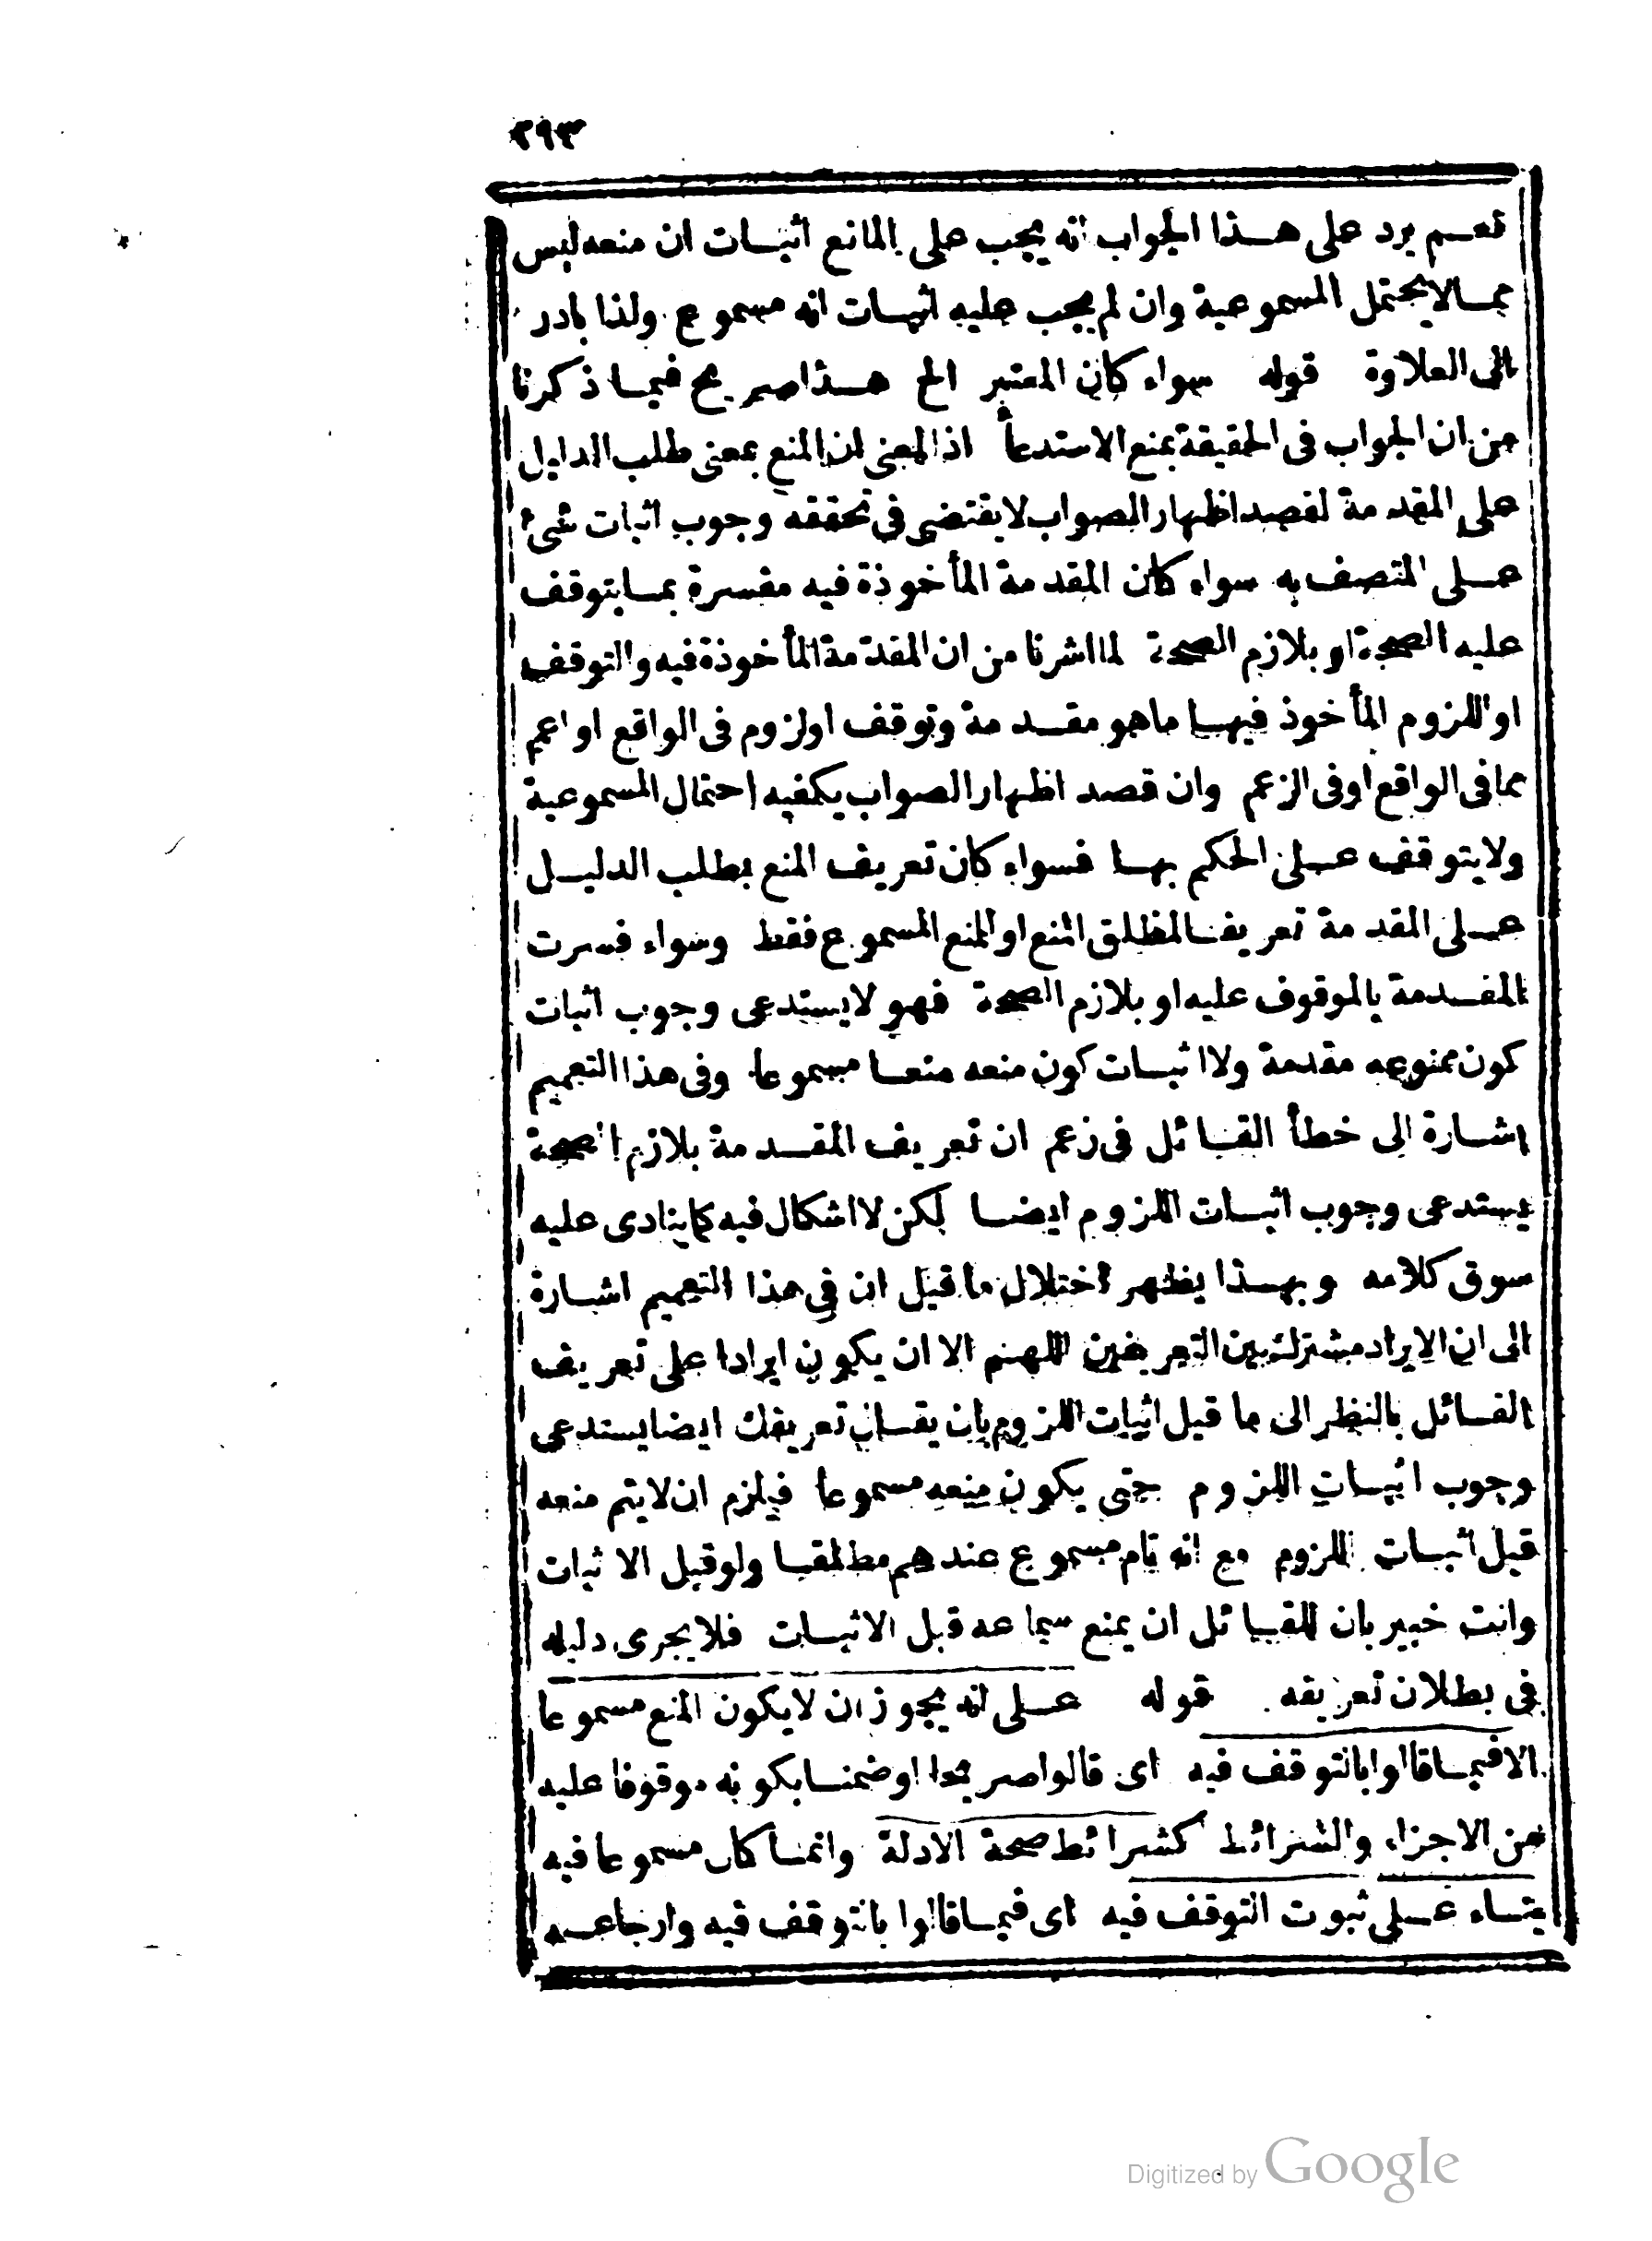 ٢٩٣
نعم يرد على هذا الجواب انه يجب على المانع اثبات ان منعه ليس
مما لا يحتمل المسموعية وان لم يجب عليه اثبات انه مسموع ولذا بادر
الى العلاوة قوله سواء كان المعتبر الخ هذا صريح فيما ذكرنا
من ان الجواب فى الحقيقة بمنع الاستدعأ اذ المعنى ان المنع بمعنى طلب الدليل
على المقدمة لقصد اظهار الصواب لا يقتضى فى تحققه وجوب اثبات شئ
على المتصف به سواء كان المقدمة المأخوذة فيه مفسرة بما يتوقف
عليه الصحة او بلازم الصحة لما اشرنا من ان المقدمة المأخوذة فيه والتوقف
او اللزوم المأخوذ فيها ما هو مقدمة وتوقف او لزوم فى الواقع او اعم
مما فى الواقع او فى الزعم وان قصد اظهار الصواب يكفيه احتمال المسموعية
ولا يتوقف على الحكم بها فسواء كان تعريف المنع بطلب الدليل
على المقدمة تعريفا لمطلق المنع او المنع المسموع فقط وسواء فسرت
المقدمة بالموقوف عليه او بلازم الصحة فهو لا يستدعى وجوب اثبات
كون ممنوعه مقدمة ولا اثبات كون منعه منعا مسموعا وفى هذا التعميم
اشارة الى خطأ القائل فى زعم ان تعريف المقدمة بلازم الصحة
يستدعى وجوب اثبات اللزوم ايضا لكن لا اشكال فيه كما ينادى عليه
سوق كلامه وبهذا يظهر اختلال ما قيل ان فى هذا التعميم اشارة
الى ان الايراد مشترك بين التعريفين اللهم الا ان يكون ايرادا على تعريف
القائل بالنظر الى ما قبل اثبات اللزوم بان يقال تعريفك ايضا يستدعى
وجوب اثبات اللزوم حتى يكون منعه مسموعا فيلزم ان لا يتم منعه
قبل اثبات اللزوم مع انه تام مسموع عندهم مطلقا ولو قبل الاثبات
وانت خبير بان للقائل ان يمنع سماعه قبل الاثبات فلا يجرى دليله
فى بطلان تعريفه قوله على انه يجوز ان لا يكون المنع مسموعا
الا فيما قالوا بالتوقف فيه اى قالوا صريحا او ضمنا بكونه موقوفا عليه
من الاجزاء والشرائط كشرائط صحة الادلة وانما كان مسموعا فيه
بناء على ثبوت التوقف فيه اى فيما قالوا بالتوقف فيه وارجاعه
Digitized by Google